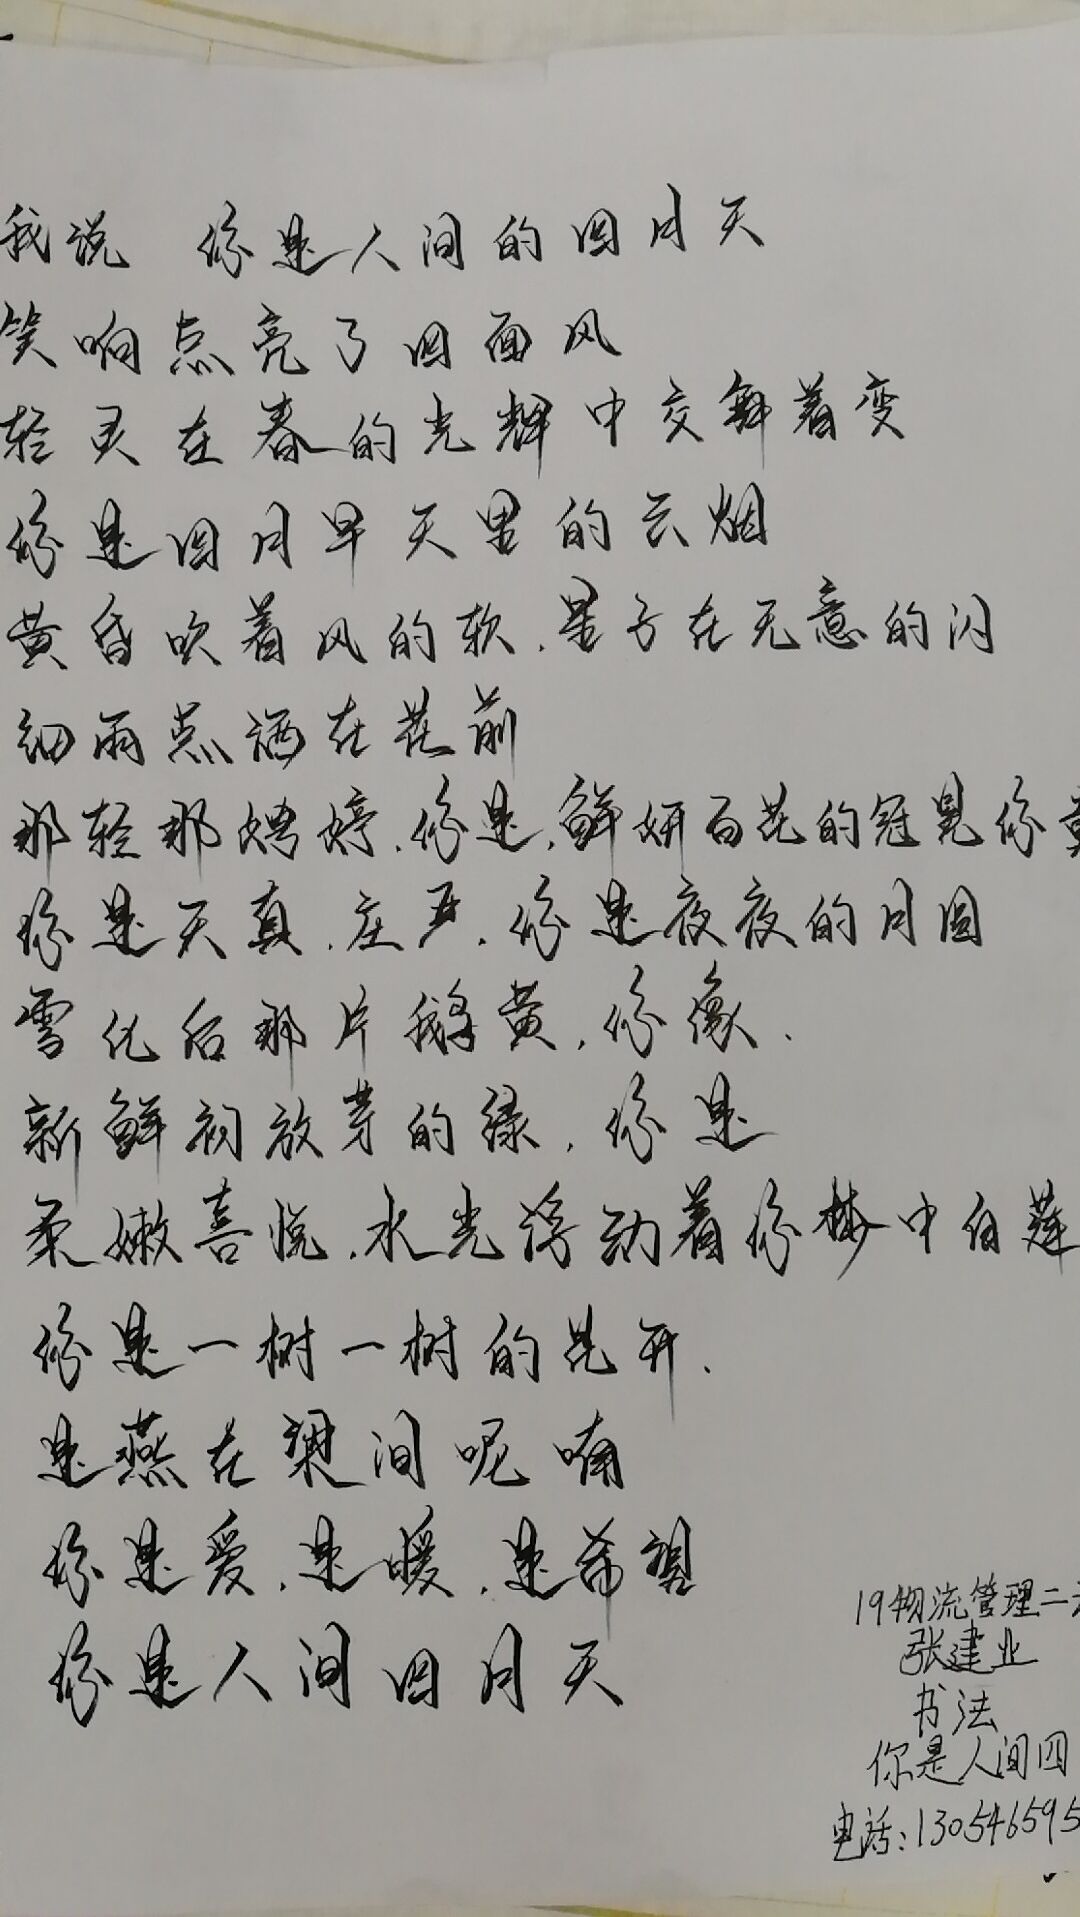 我说 你是人间的四月天
笑响点亮了四面风
轻灵在春的光辉中交舞着变
你是四月早天里的云烟
黄昏吹着风的软，星子在无意的闪
细雨点洒在花前
那轻那娉婷，你是，鲜妍百花的冠冕你
你是天真，庄严，你是夜夜的月圆
雪化后那片鹅黄，你像，
新鲜初放芽的绿，你是
柔嫩喜悦，水光浮动着你梦中白莲
你是一树一树的花开，
是燕在梁间呢喃
你是爱，是暖，是希望
你是人间四月天
19物流管理二
张建业
书法
你是人间四
电话：130546595